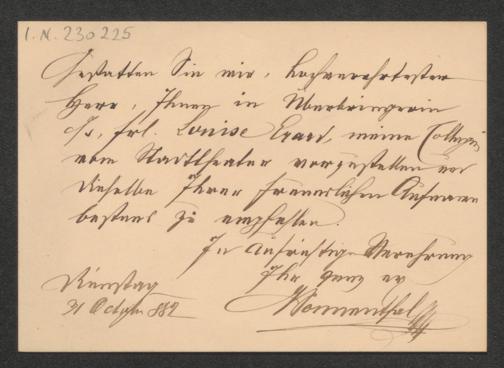 I.N. 230225
Gestatten Sie mir, hochverehrtester
Herr, Ihnen in Überbringerin
d/s, Frl. Louise Erard, meine Collegin
vom Stadttheater vorzustellen und
dieselbe Ihrer freundlichen Aufnahme
bestens zu empfehlen.
In aufrichtiger Verehrung
Ihr ganz erg
Sonnenthal
Dienstag
31 Octbr 882